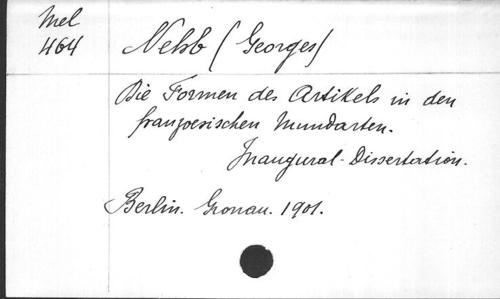 Mel
464
Nehb (Georges)
Die Formen des Artikels in den
franzoesischen Mundarten.
Inaugural-Dissertation.
Berlin. Gronau. 1901.